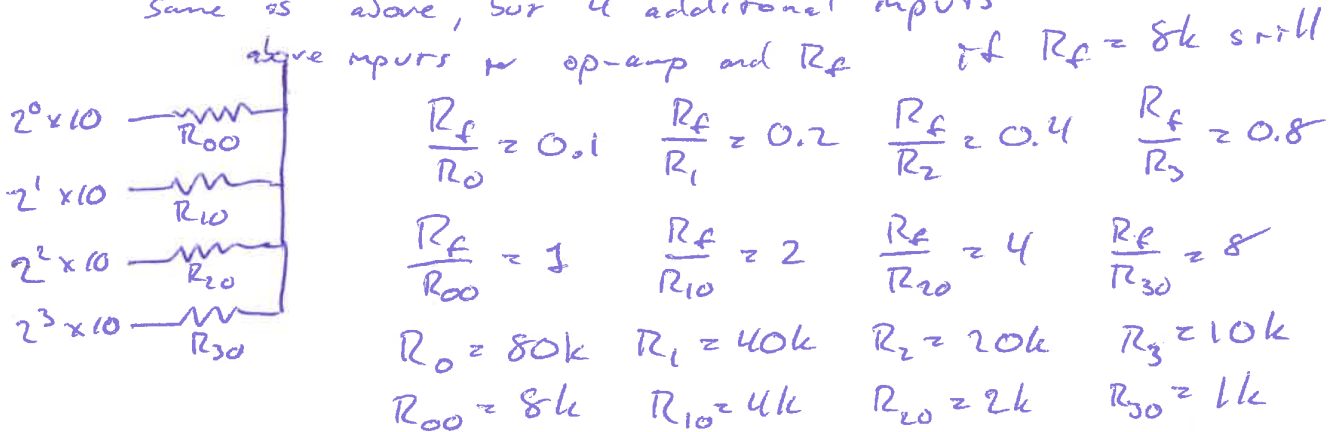 same as above, but 4 additional inputs
above inputs to op-amp and Rf if Rf = 8k still
2⁰ x 10 R00
2¹ x 10 R10
2² x 10 R20
2³ x 10 R30
Rf/R0 = 0.1 Rf/R1 = 0.2 Rf/R2 = 0.4 Rf/R3 = 0.8
Rf/R00 = 1 Rf/R10 = 2 Rf/R20 = 4 Rf/R30 = 8
R0 = 80k R1 = 40k R2 = 20k R3 = 10k
R00 = 8k R10 = 4k R20 = 2k R30 = 1k